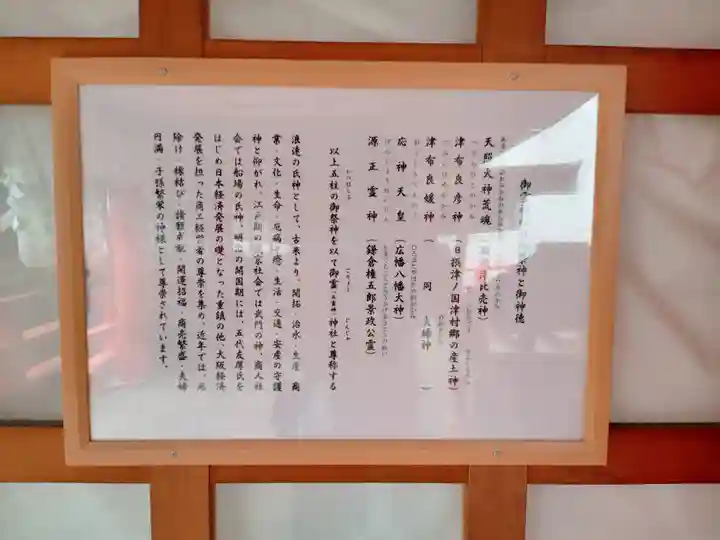 神と御神徳
天照大神荒魂
津布良彦神（旧摂津ノ国津村郷の産土神）
津布良媛神（ 岡 夫婦神 ）
応神天皇（広幡八幡大神）
源正霊神（鎌倉権五郎景政公霊）
以上五柱の御祭神を以て御霊神社と尊称する
浪速の氏神として、古来より、開拓・治水・生産・商
業・文化・生命・厄病・生活・交通・安産の守護
神と仰がれ、江戸期の 家社会では武門の神、商人社
会では船場の氏神、明治の開国期には、五代友厚氏を
はじめ日本経済発展の礎となった重鎮の他、大阪経済
発展を担った商工経営者の尊崇を集め、近年では、厄
除け・縁結び・諸願成就・開運招福・商売繁盛・夫婦
円満・子孫繁栄の神様として尊崇されています。